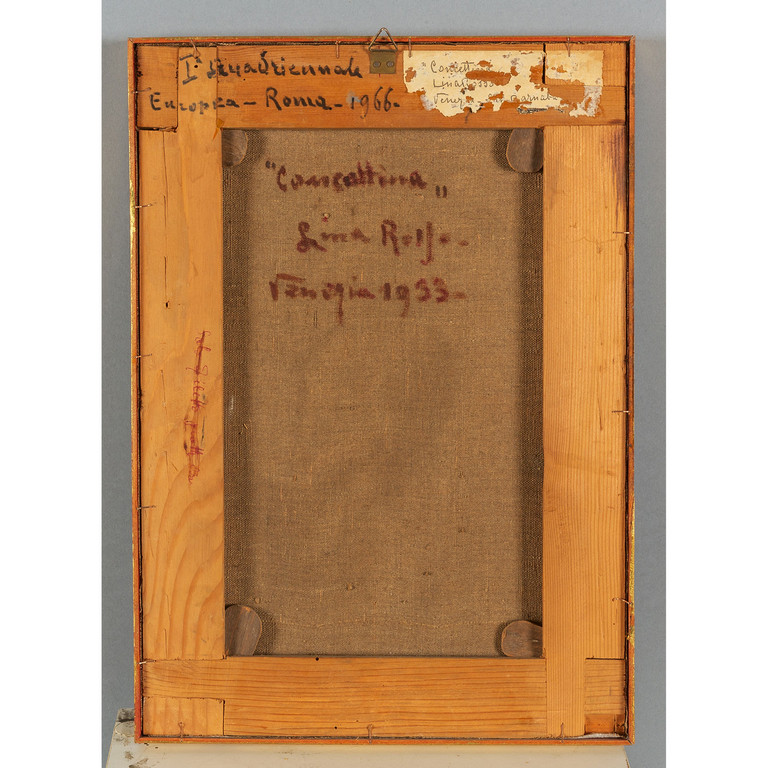 Iª Quadriennale
Europea - Roma - 1966 -
"Concettina
Venezia
"Concettina„
Lina Rosso -
Venezia 1933 -